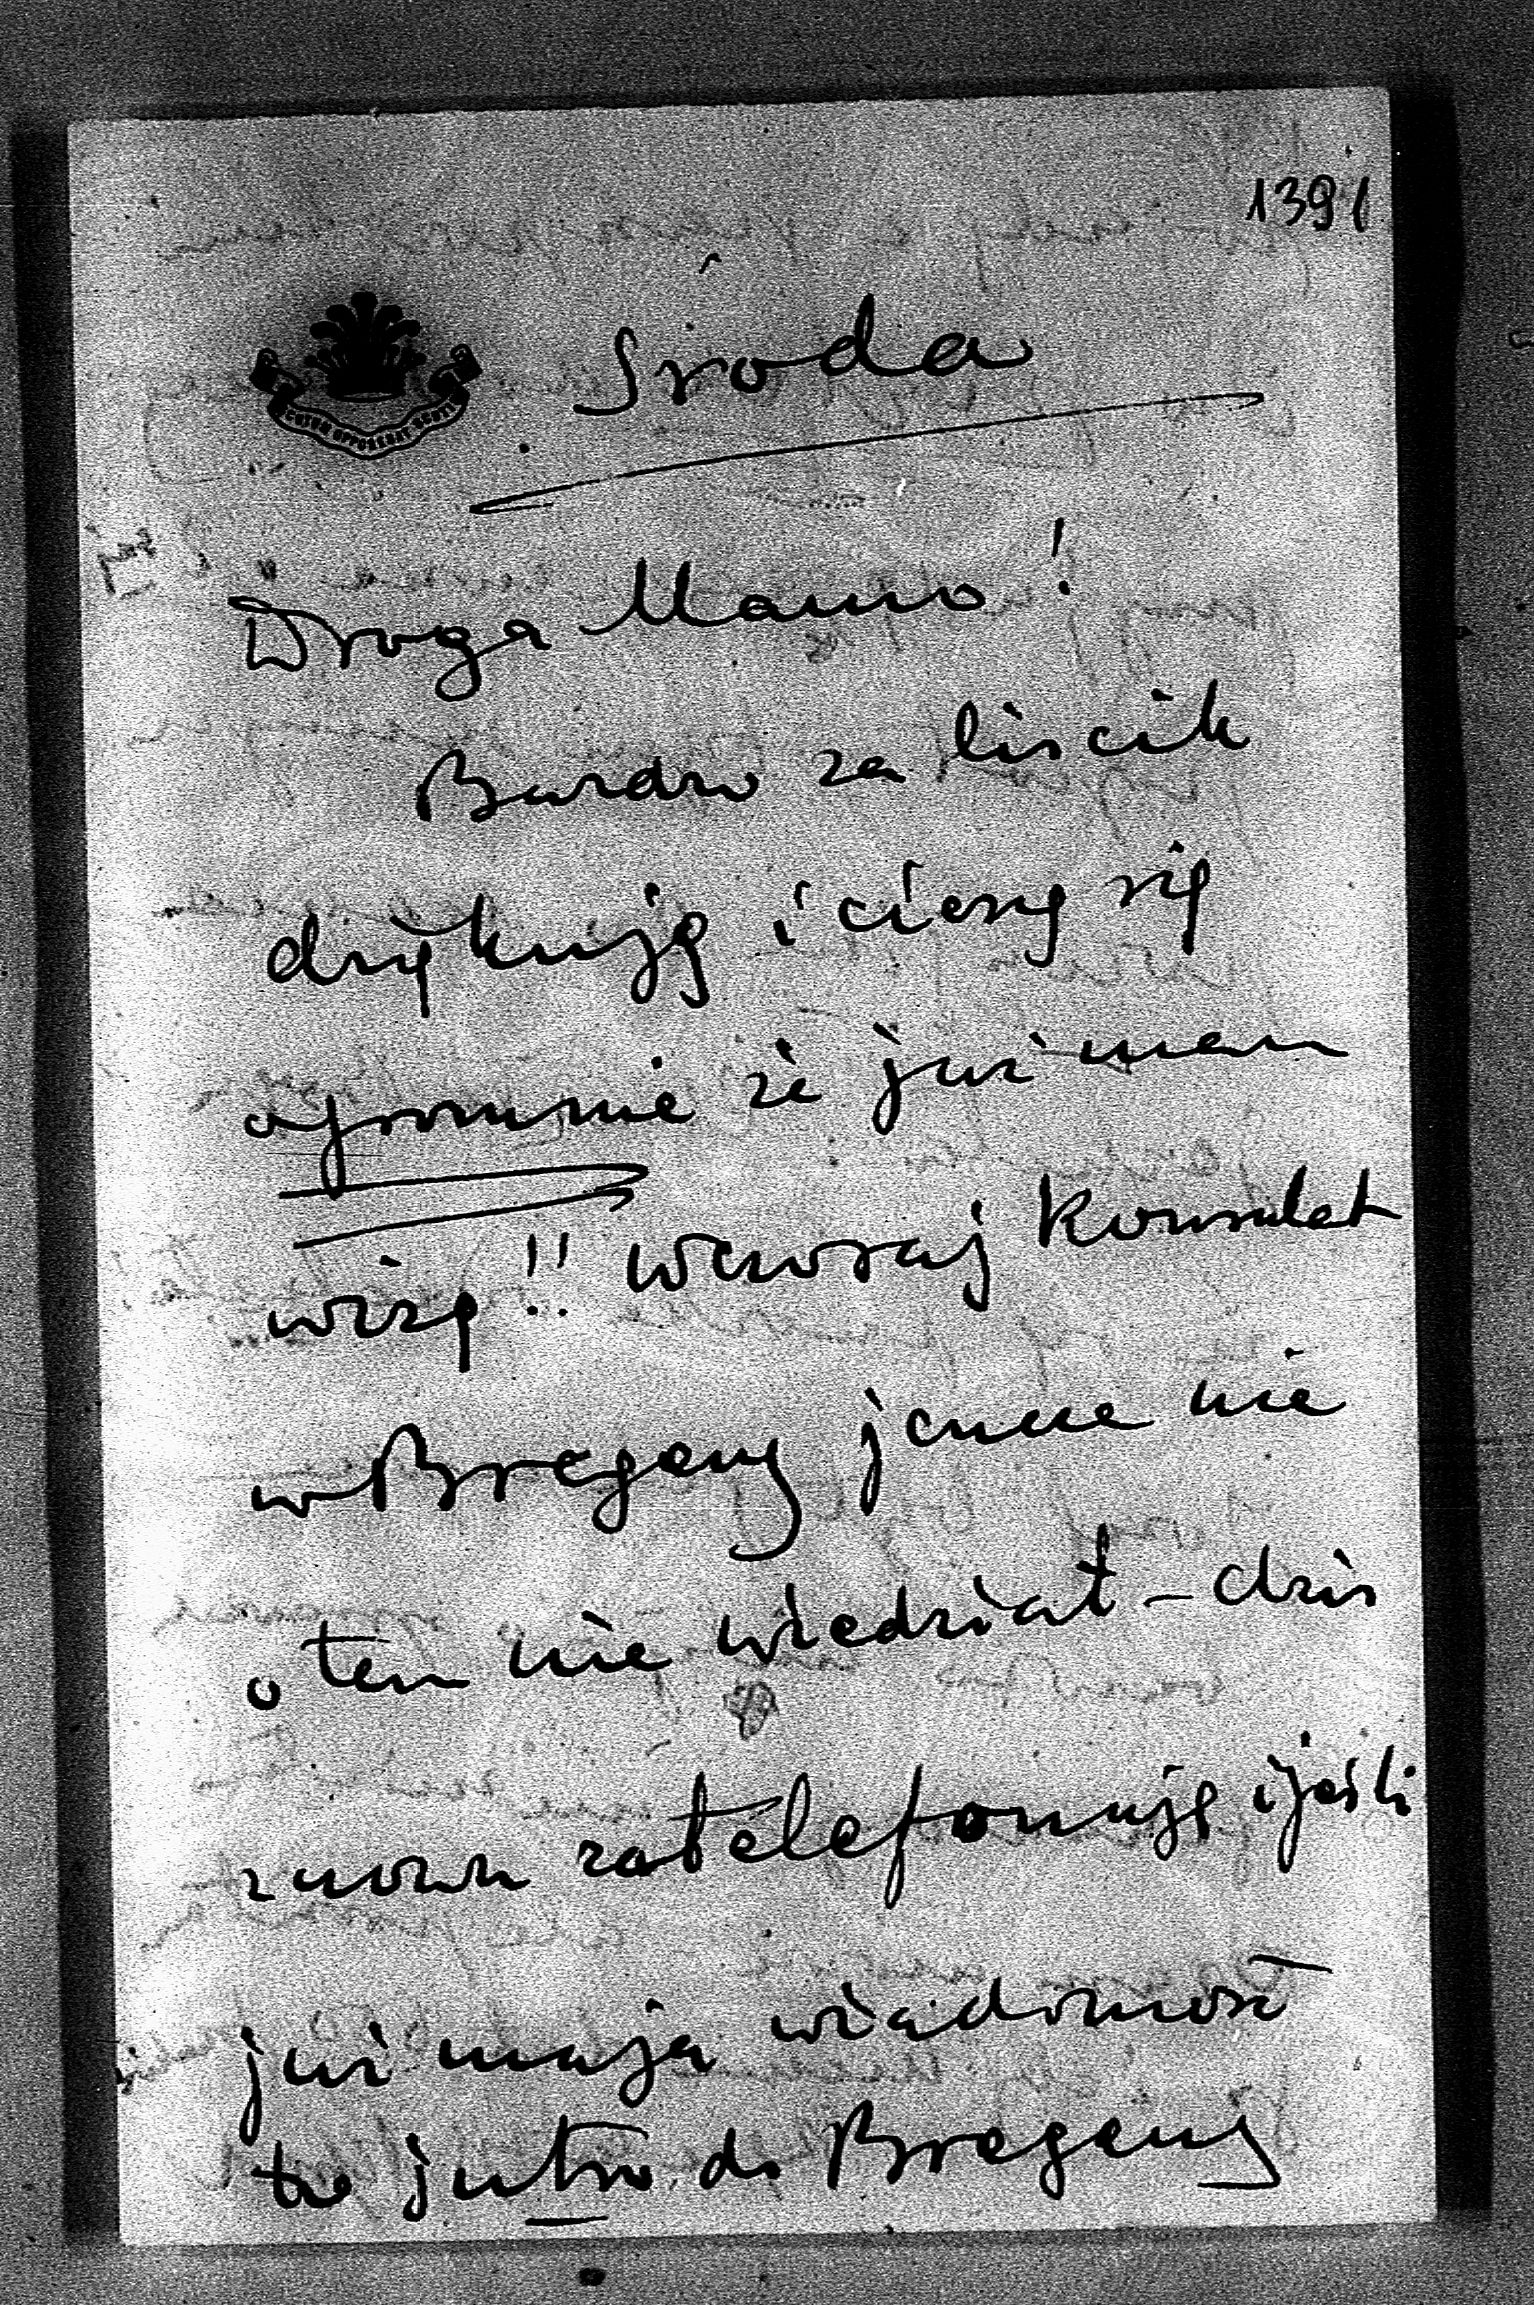 1391
SCUTUM OPPONEBAT SCUTI
Środa
Droga Mamo!
Bardzo za liścik
dziękuję i cieszę się
ogromnie że już mam
wizę!! Wczoraj Konsulat
w Bregenz jeszcze nie
o tem nie wiedział – dziś
znowu zatelefonuję i jeśli
już mają wiadomość
to jutro do Bregenz